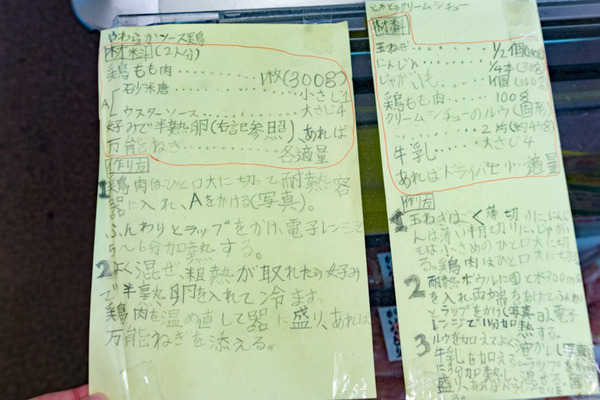 やわらかソース鶏
材料(2人分)
鶏もも肉……………1枚(300g)
A 砂糖……………小さじ1
ウスターソース……大さじ4
好みで半熟卵(右記参照)、あれば
万能ねぎ……………各適量
作り方
1 鶏肉はひと口大に切って耐熱容
器に入れ、Aをかける(写真)。
ふんわりとラップをかけ、電子レンジで
5〜6分加熱する。
2 よく混ぜ、粗熱が取れたら好み
で半熟卵を入れて冷ます。
鶏肉を温め直して器に盛り、あれば
万能ねぎを添える。
クリームシチュー
材料
玉ねぎ……………1/2個
にんじん……………1/4本
じゃがいも……………1個
鶏もも肉……………100g
クリームシチューのルウ(固形)
……………2片
牛乳……………大さじ4
あればドライパセリ…適量
作り方
1 玉ねぎはごく薄切りに、にんじ
んは薄い半月切りに、じゃがい
もは小さめのひと口大に切
る。鶏肉はひと口大に切る。
2 耐熱ボウルに①と水300ml
を入れ、両端をあけてふんわり
とラップをかけ(写真)、電子
レンジで11分加熱する。
3 ルウを加えてよく溶かし(写真)
牛乳を加える。ラップを
に3分加熱し、
盛り、あればドライパセリを
る。